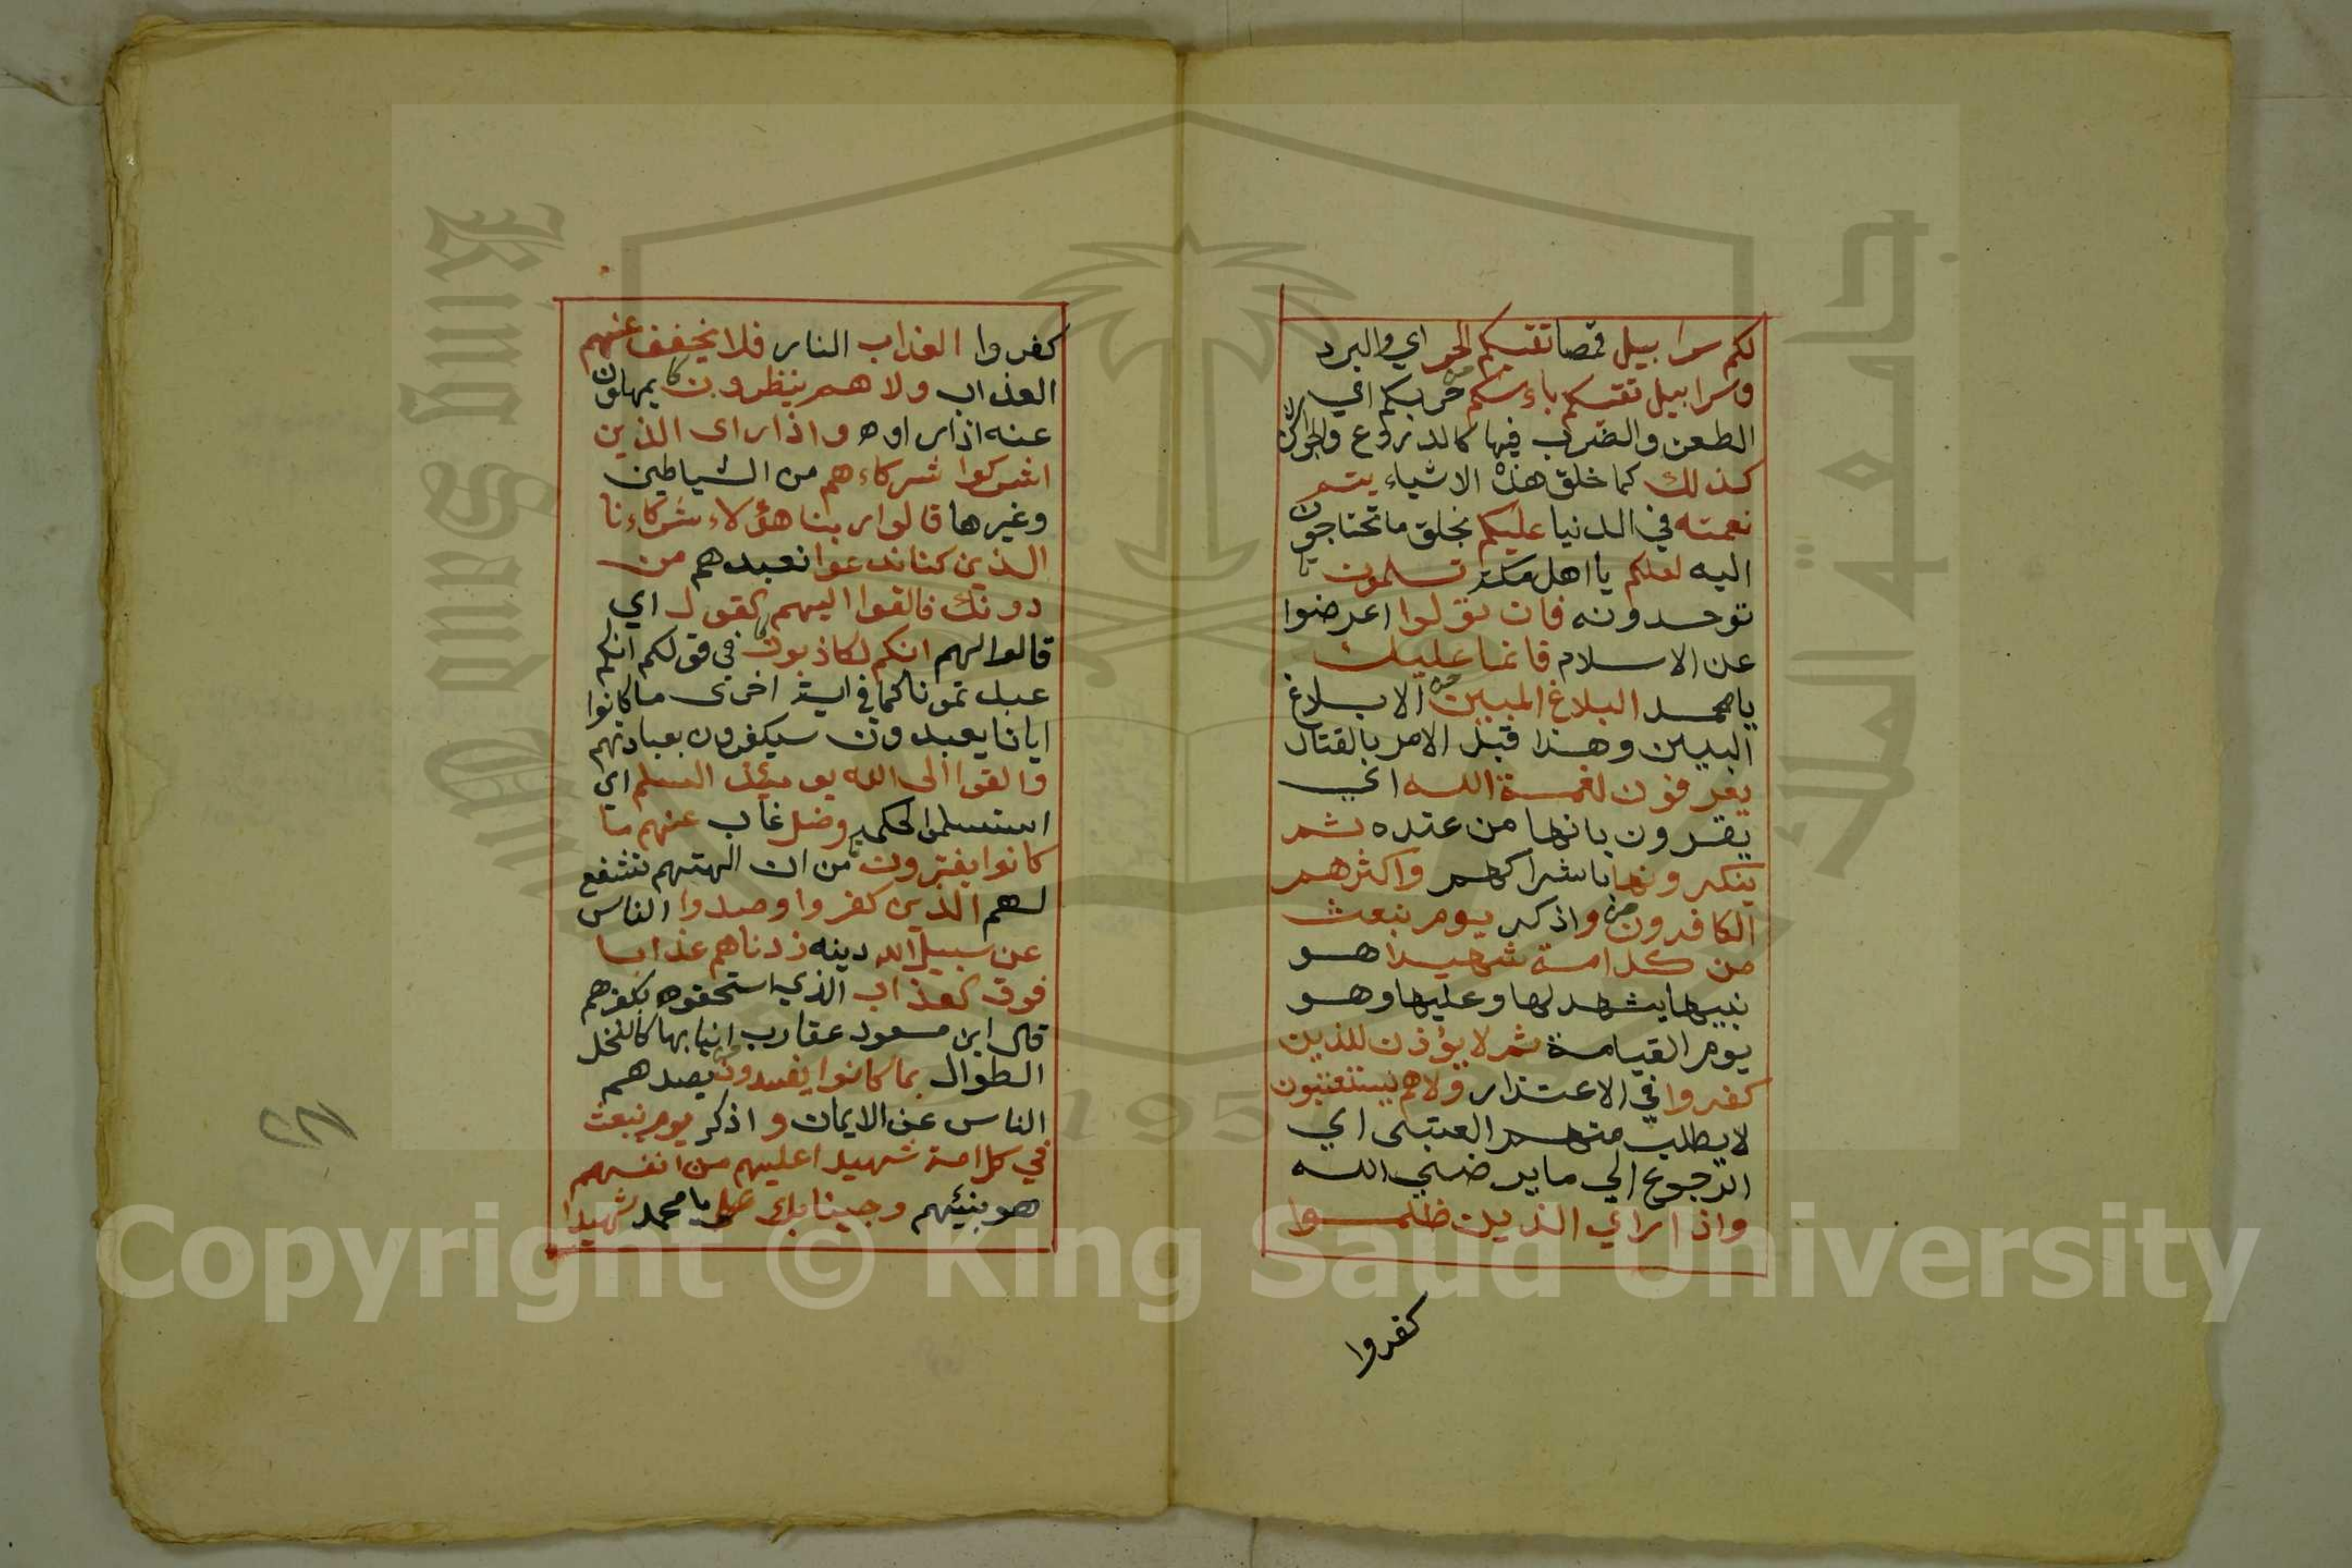 لكم سرابيل قمصا تقيكم الحر اي والبرد
وسرابيل تقيكم باءسكم حربكم اي
الطعن والضرب فيها كالدروع والجواشن
كذلك كما خلق هذه الاشياء يتم
نعمته في الدنيا عليكم بخلق ما تحتاجون
اليه لعلكم يا اهل مكة تسلمون
توحدونه فان تولوا اعرضوا
عن الاسلام فانما عليك
يا محمد البلاغ المبين الابلاغ
البين وهذا قبل الامر بالقتال
يعرفون نعمة الله اي
يقرون بانها من عنده ثم
ينكرونها باشراكهم واكثرهم
الكافرون واذكر يوم نبعث
من كل امة شهيدا هو
نبيها يشهد لها وعليها وهو
يوم القيامة ثم لا يؤذن للذين
كفروا في الاعتذار ولا هم يستعتبون
لا يطلب منهم العتبى اي
الرجوع الي ما يرضي الله
واذا راي الذين ظلموا
كفروا
كفروا العذاب النار فلا يخفف عنهم
العذاب ولا هم ينظرون يمهلون
عنه اذا راوه واذا راى الذين
اشركوا شركاءهم من الشياطين
وغيرها قالوا ربنا هؤلاء شركاءنا
الذين كنا ندعوا نعبدهم من
دونك فالقوا اليهم القول اي
قالوا لهم انكم لكاذبون في قولكم انكم
عبدتمونا كما في اية اخرى ما كانوا
ايانا يعبدون سيكفرون بعبادتهم
والقوا الى الله يومئذ السلم اي
استسلموا لحكمه وضل غاب عنهم ما
كانوا يفترون من ان الهتهم تشفع
لهم الذين كفروا وصدوا الناس
عن سبيل الله دينه زدناهم عذابا
فوق العذاب الذي استحقوه بكفرهم
قال ابن مسعود عقارب انيابها كالنخل
الطوال بما كانوا يفسدون بصدهم
الناس عن الايمان و اذكر يوم نبعث
في كل امة شهيدا عليهم من انفسهم
هو نبيئهم وجينا بك يا محمد شهيدا
King Saud University
جامعة الملك
1957
Copyright © King Saud University